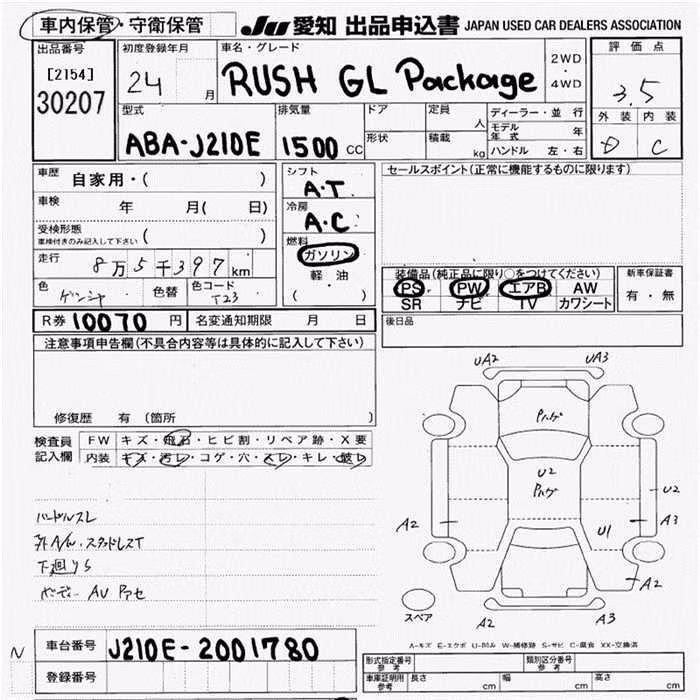 車内保管・守衛保管
JU 愛知 出品申込書 JAPAN USED CAR DEALERS ASSOCIATION
出品番号
[2154]
30207
初度登録年月
24 月
車名・グレード
RUSH GL Package
2WD
・
4WD
評価点
3.5
外装 内装
D C
型式
ABA-J210E
排気量
1500 CC
ドア
形状
定員
人
積載
kg
ディーラー・並行
モデル年式 年
ハンドル 左・右
車歴
自家用・( )
車検
年 月( 日)
受検形態
車検付きのみ記入して下さい ( )
走行
8万5千397km
色
色替
色コード
T23
シフト
A・T
冷房
A・C
燃料
ガソリン
軽・油
( )
セールスポイント(正常に機能するものに限ります)
装備品(純正品に限り○をつけてください)
PS PW エアB AW
SR ナビ TV カワシート
新車保証書
有・無
R券 10070 円 名変通知期限 月 日
後日品
注意事項申告欄(不具合内容等は具体的に記入して下さい)
修復歴 有 (箇所 )
検査員
記入欄
FW キズ・飛石・ヒビ割・リペア跡・X要
内装 キズ・汚レ・コゲ・穴・スレ・キレ・破レ
ハンドルスレ
外A/W・スタッドレスT
下廻りS
UA2 UA3
Pハゲ
U2
Pハゲ
U2
A2 A3
U1
A2
A2 A3
スペア
A-キズ E-エクボ U-凹み W-補修跡 S-サビ C-腐食 XX-交換済
N
車台番号
J210E-2001780
登録番号
形式指定番号
参考
類別区分番号
参考
車庫証明用
参考
長さ cm 幅 cm 高さ cm